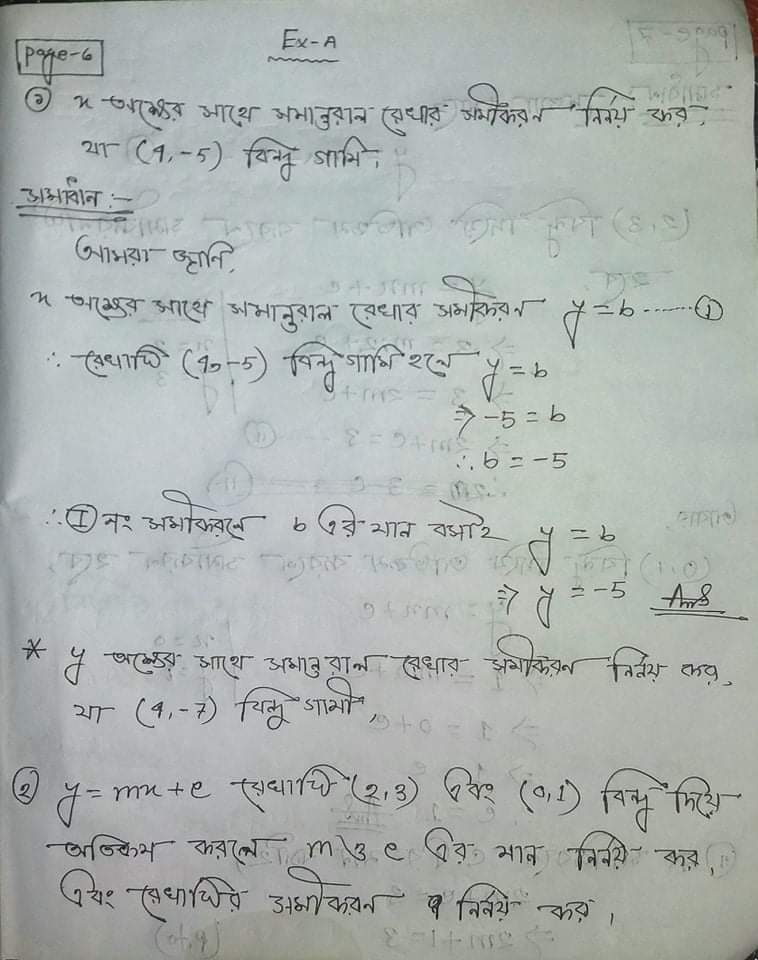 Ex-A
Page-6
১) x অক্ষের সাথে সমান্তরাল রেখার সমীকরন নির্নয় কর,
যা (4, -5) বিন্দু গামি,
সমাধান :-
আমরা জানি,
x অক্ষের সাথে সমান্তরাল রেখার সমীকরন y = b ...... ①
∴ রেখাটি (4, -5) বিন্দু গামি হলে y = b
⇒ -5 = b
∴ b = -5
∴ Ⓘ নং সমীকরনে b এর মান বসাই y = b
⇒ y = -5 Ans
* y অক্ষের সাথে সমান্তরাল রেখার সমীকরন নির্নয় কর,
যা (4, -7) বিন্দু গামী,
২) y = mx + c রেখাটি (2,3) এবং (0,1) বিন্দু দিয়ে
অতিক্রম করলে m ও c এর মান নির্নয় কর,
এবং রেখাটির সমীকরন নির্নয় কর,